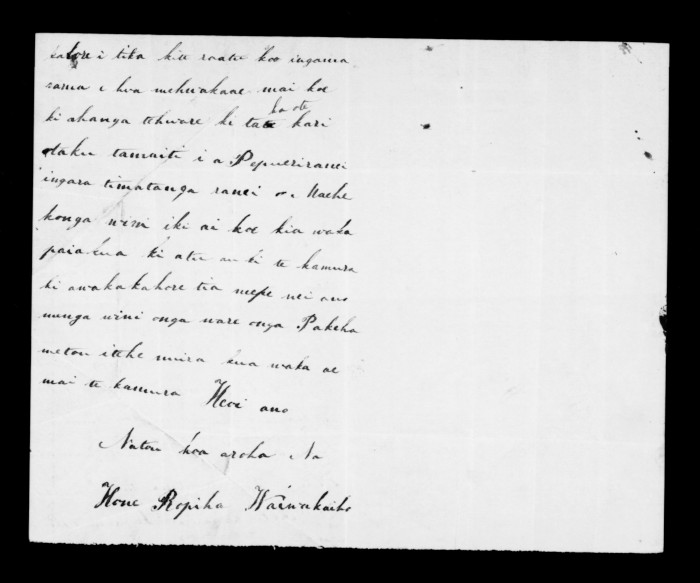 katore i tika kite raatu koo ingama
rama e hua mehwakaae mai koe
ki ahanga tehware ki tate ka ote kari
taku tamaiti i a Pepueriranei
ingara timatanga ranei o Maehe
konga wini iki ai koe kia waka
paiakua ki atu au ki te kamura
ki awakakahore tia mepe nei ano
nunga wini onga ware onga Pakeha
metou itehe muira kua waka ae
mai te kamura Heoi ano
Natou hoa aroha Na
Hone Ropiha Waiwakaiho